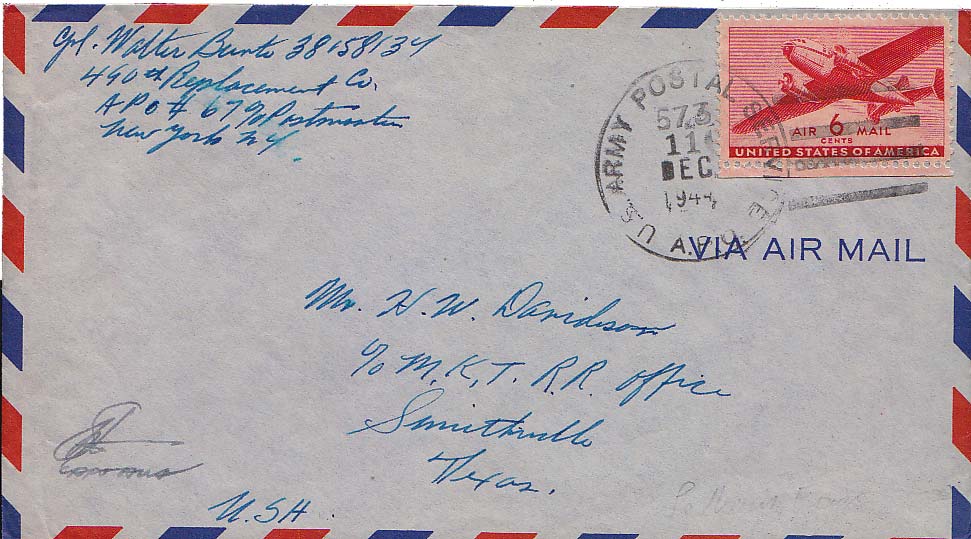 Cpl. Walter 38158134
490th Replacement Co.
A P O # 67 % Postmaster
New York N.Y.
U.S. ARMY POSTAL SERVICE
573
11
DEC
1944
A.P.O.
AIR 6 MAIL
CENTS
UNITED STATES OF AMERICA
VIA AIR MAIL
Mr. H. W. Davidson
c/o M. K. T. R. R. Office
Smithville
Texas.
U.S.A.